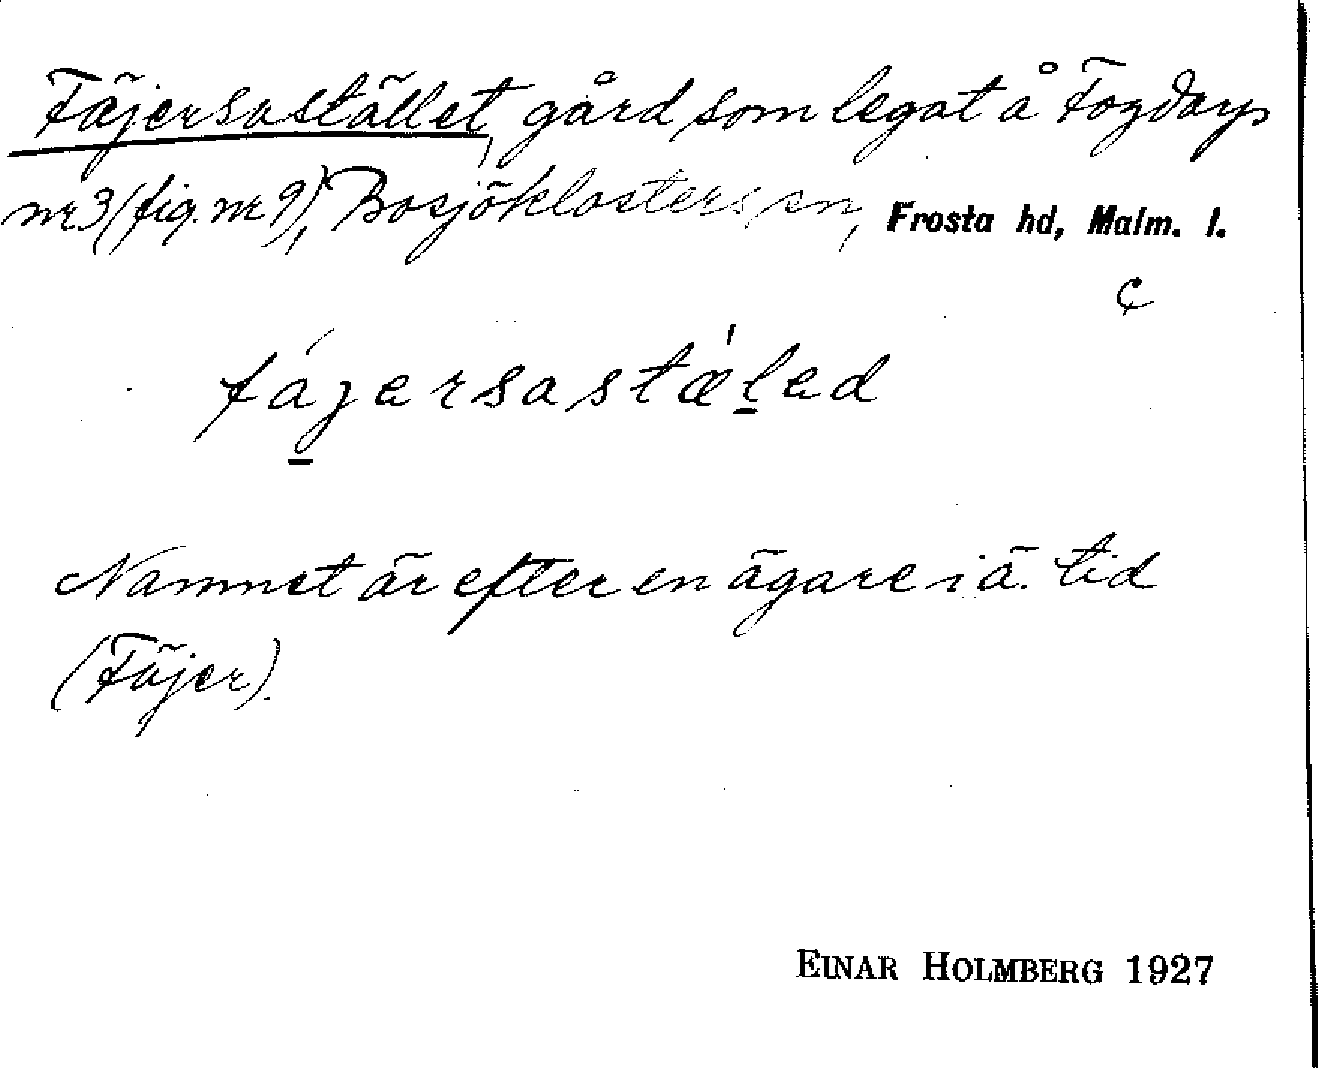 Fäjersastället, gård som legat å Fogdarp
nr 3 (fig. nr 9), Bosjöklosters sn, Frosta hd, Malm. l.
¢
fájersastæ̍led
Namnet är efter en ägare i ä. tid
(Fäjer).
EINAR HOLMBERG 1927